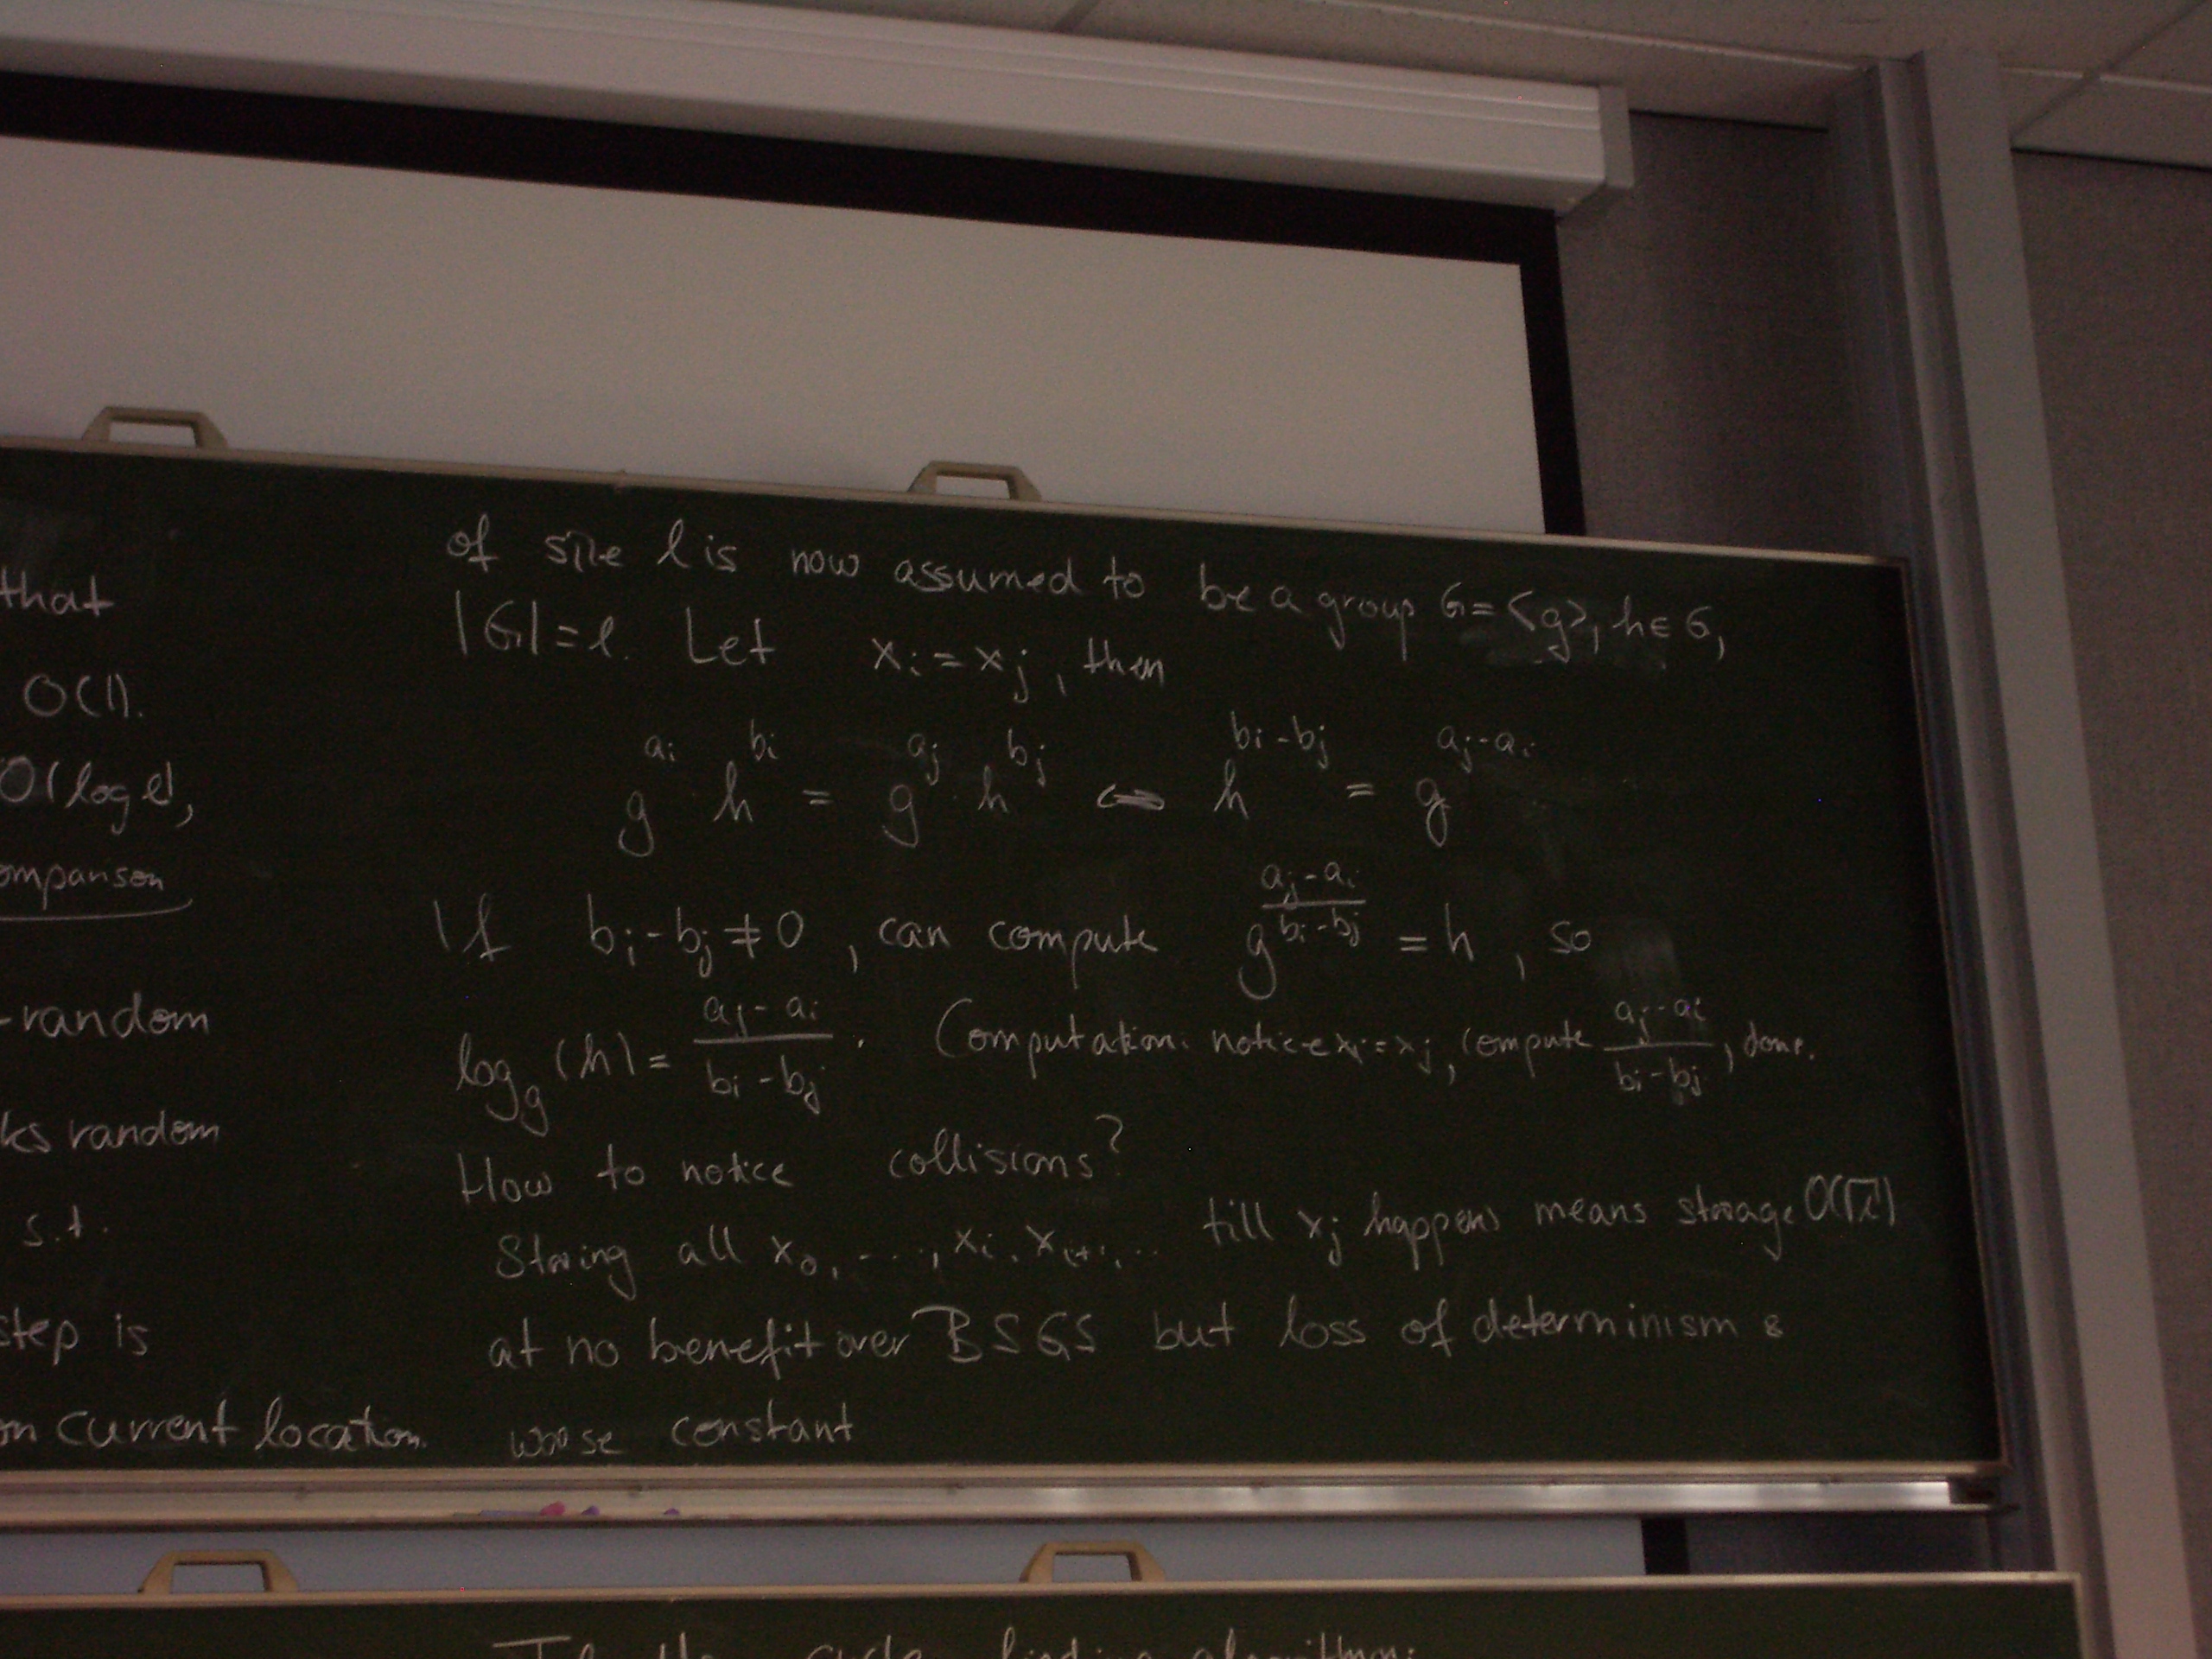 that
O(1).
O(log ℓ),
omparison
-random
ks random
s.t.
step is
on current location.
of size ℓ is now assumed to be a group G = <g>, h ∈ G,
|G| = ℓ. Let x_i = x_j, then
g^{a_i} h^{b_i} = g^{a_j} h^{b_j} ⇔ h^{b_i - b_j} = g^{a_j - a_i}
If b_i - b_j ≠ 0, can compute g^{\frac{a_j - a_i}{b_i - b_j}} = h, so
log_g(h) = \frac{a_j - a_i}{b_i - b_j}. Computation: notice x_i = x_j, compute \frac{a_j - a_i}{b_i - b_j}, done.
How to notice collisions?
Storing all x_0, ..., x_i, x_{i+1}, ... till x_j happens means storage O(√ℓ)
at no benefit over BSGS but loss of determinism &
worse constant
cycle finding algorithm: